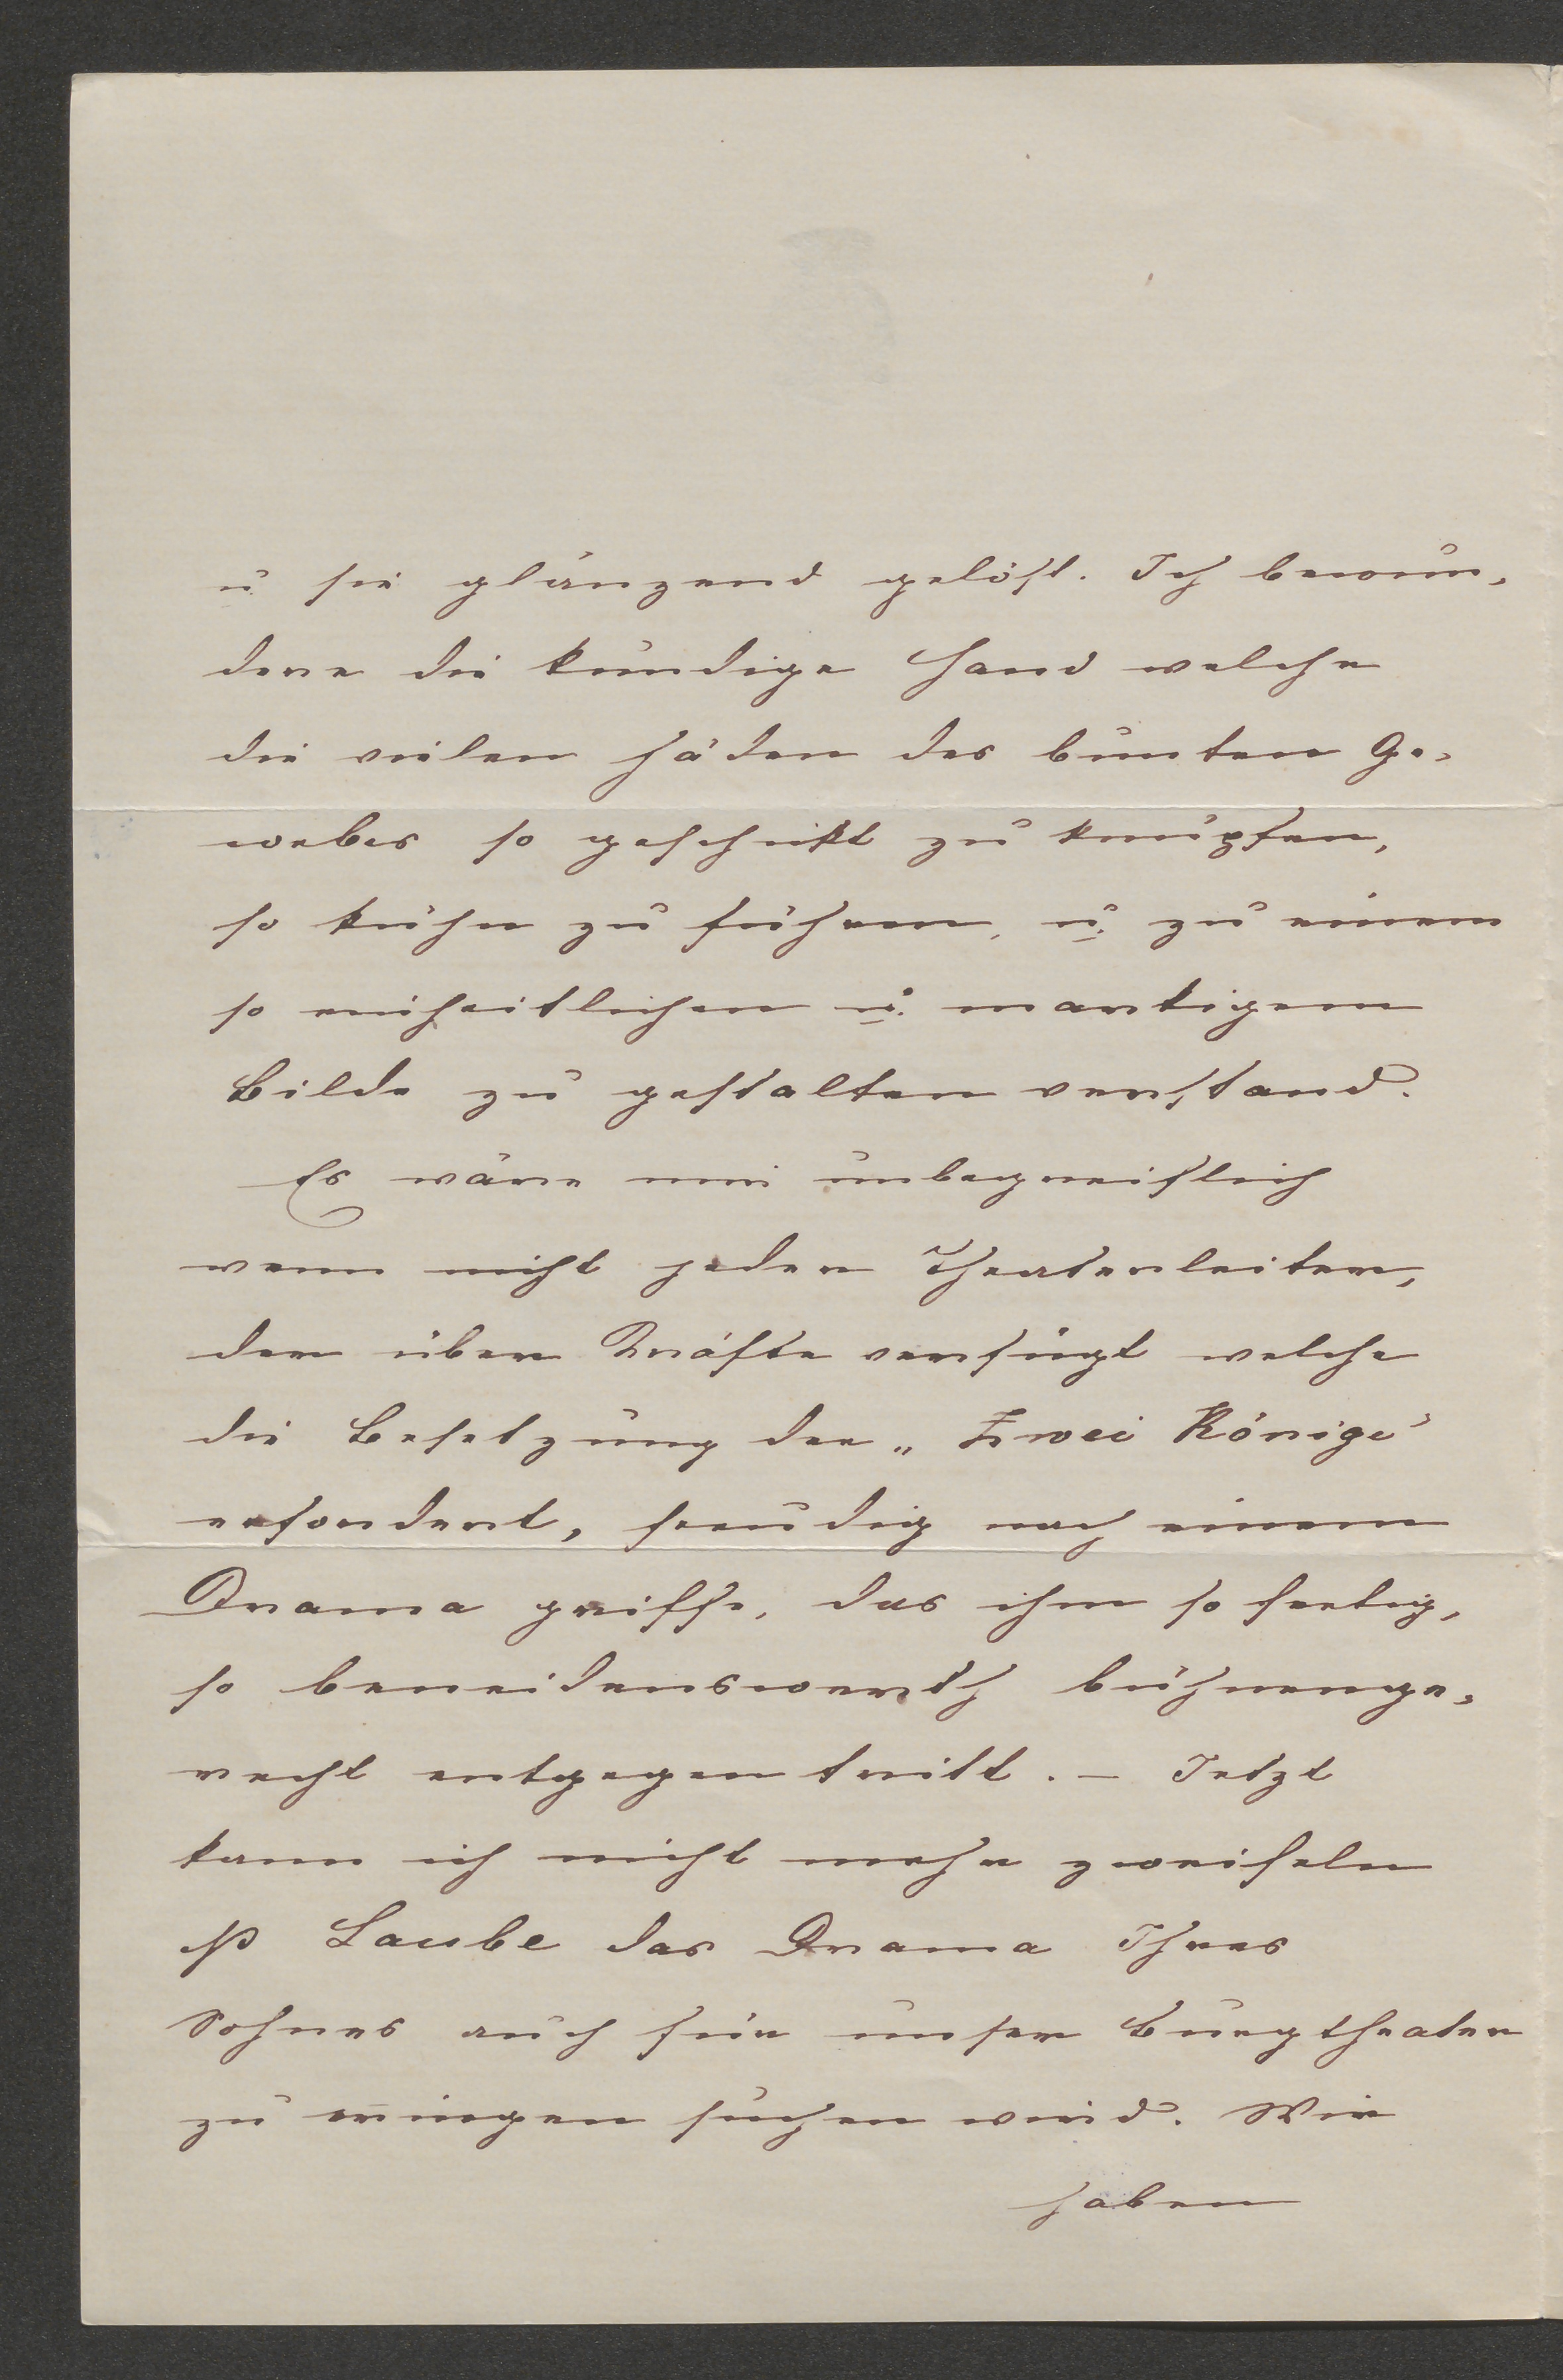 u. sie glänzend gelöst. Ich bewun-
dere die kundige Hand welche
die vielen Fäden des bunten Ge-
webes so geschikt zu knüpfen,
so kühn zu führen, u. zu einem
so einheitlichen u. markigem
Bilde zu gestalten verstand.
Es wäre mir unbegreiflich
wenn nicht jeder Theaterleiter,
der über Kräfte verfügt welche
die Besetzung der „Zwei Könige"
erfordert, freudig nach einem
Drama griffe, das ihm so fertig,
so beneidenswerth bühnenge-
recht entgegentritt. – Jetzt
kann ich nicht mehr zweifeln
Laube das Drama Ihres
Sohnes auch für unser Burgtheater
zu erringen suchen wird. Wir
haben